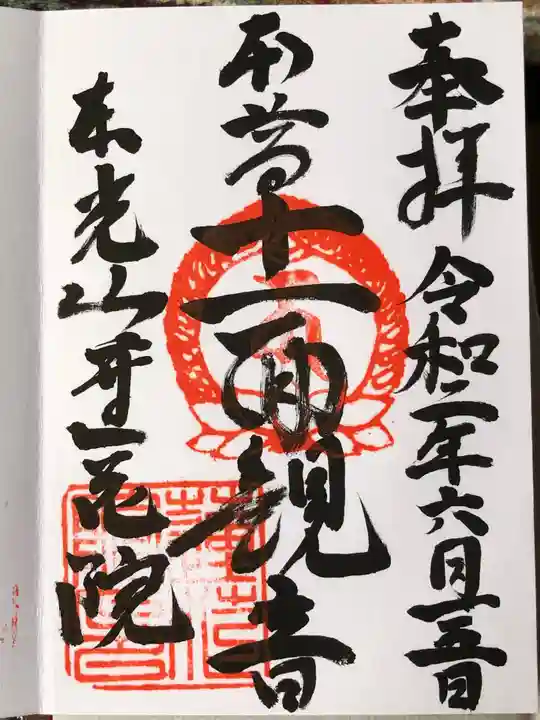 奉拝 令和二年六月十五日
本尊十一面観音
東光山菩提院